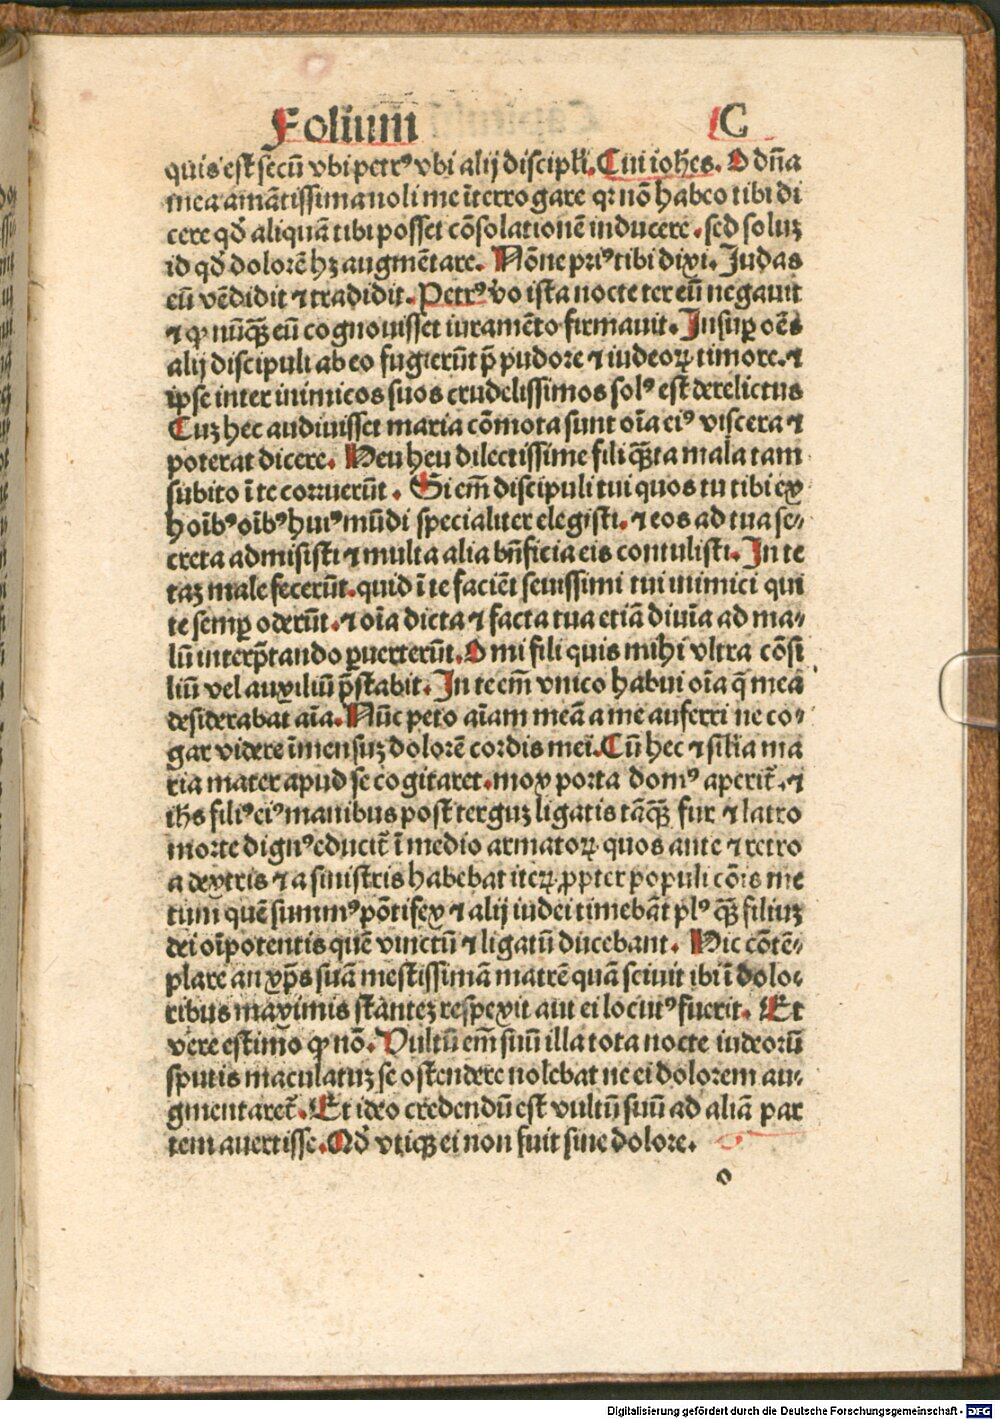 Folium C
quis est secū vbi petrꝰ vbi alij discipłi. Cui ioħes. O dña
mea amātissima noli me īterrogare qꝛ nō habeo tibi di
cere qđ aliquā tibi posset cōsolationē inducere. sed soluꝫ
id qđ dolorē hꝫ augmētare. Nōne priꝰ tibi dixi. Judas
eū vēdidit ⁊ tradidit. Petrꝰ ṽo ista nocte ter eū negauit
⁊ ꝙ nūqꝫ̄ eū cognouisset iuramēto firmauit. Insuꝑ oēs
alij discipuli ab eo fugierūt p̄ pudore ⁊ iudeoꝝ timore. ⁊
ipse inter inimicos suos crudelissimos solꝰ est derelictus
Cuꝫ hec audiuisset maria cōmota sunt oīa eiꝰ viscera ⁊
poterat dicere. Heu heu dilectissime fili qꝫ̄ta mala tam
subito ī te corruerūt. Si em̄ discipuli tui quos tu tibi ex
hoībꝰ oībꝰ huiꝰ mūdi specialiter elegisti. ⁊ eos ad tua se⸗
creta admisisti ⁊ multa alia bñficia eis contulisti. In te
taꝫ male fecerūt. quid ī te faciēt seuissimi tui inimici qui
te semꝑ oderūt. ⁊ oīa dicta ⁊ facta tua etiā diuīa ad ma⸗
lū interp̄tando ꝑuerterūt. O mi fili quis mihi vltra cōsi
liū vel auxiliū p̄stabit. In te em̄ vnico habui oīa q̄ mea
desiderabat aīa. Nūc peto aīam meā a me auferri ne co⸗
gar videre īmensuꝫ dolorē cordis mei. Cū hec ⁊ silīa ma
ria mater apud se cogitaret. mox porta domꝰ aperit̄. ⁊
ihs filiꝰ eiꝰ manibus post terguꝫ ligatis tāqꝫ̄ fur ⁊ latro
morte dignꝰ educit̄ ī medio armatoꝝ quos ante ⁊ retro
a dextris ⁊ a sinistris habebat iteꝝ ꝓpter populi cōis me
tum quē summꝰ pōtifex ⁊ alij iudei timebāt plꝰ qꝫ̄ filiuꝫ
dei oīpotentis quē vinctū ⁊ ligatū ducebant. Hic cōtē⸗
plare an xp̄s suā mestissimā matrē quā sciuit ibi ī dolo⸗
ribus maximis stanteꝫ respexit aut ei locutꝰ fuerit. Et
vere estimo ꝙ nō. Vultū em̄ suū illa tota nocte iudeorū
sputis maculatuꝫ se ostendere nolebat ne ei dolorem au⸗
gmentaret̄. Et ideo credendū est vultū suū ad aliā par
tem auertisse. Qđ vtiqꝫ ei non fuit sine dolore.
o
Digitalisierung gefördert durch die Deutsche Forschungsgemeinschaft - DFG